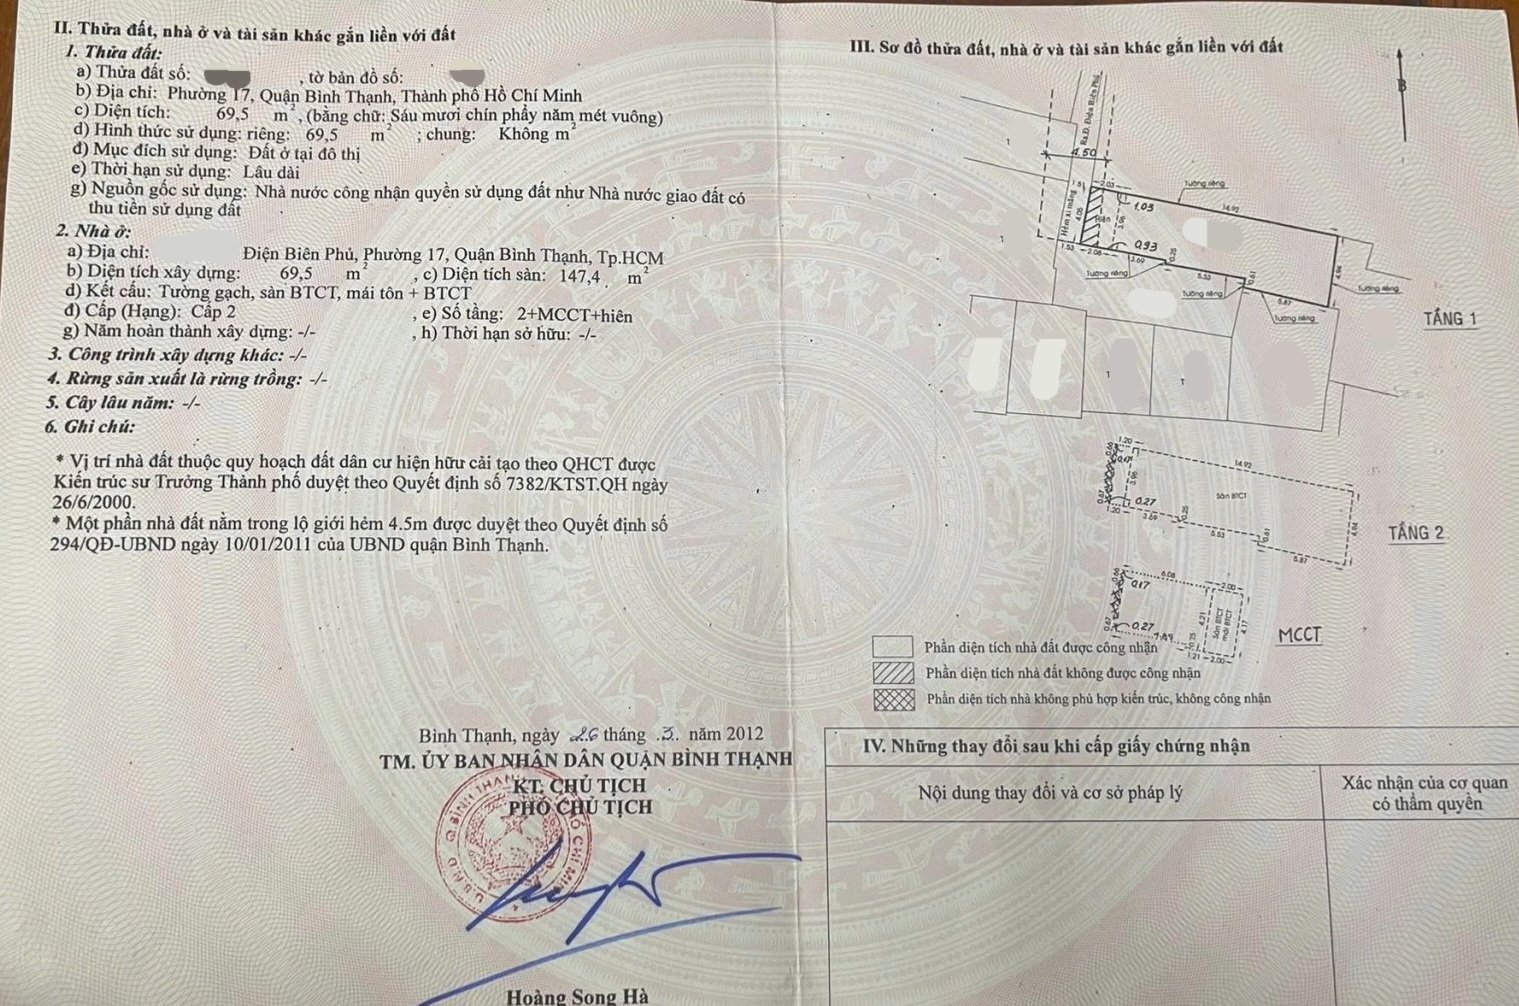 II. Thửa đất, nhà ở và tài sản khác gắn liền với đất
1. Thửa đất:
a) Thửa đất số: , tờ bản đồ số:
b) Địa chỉ: Phường 17, Quận Bình Thạnh, Thành phố Hồ Chí Minh
c) Diện tích: 69,5 m², (bằng chữ: Sáu mươi chín phẩy năm mét vuông)
d) Hình thức sử dụng: riêng: 69,5 m² ; chung: Không m²
đ) Mục đích sử dụng: Đất ở tại đô thị
e) Thời hạn sử dụng: Lâu dài
g) Nguồn gốc sử dụng: Nhà nước công nhận quyền sử dụng đất như Nhà nước giao đất có
thu tiền sử dụng đất
2. Nhà ở:
a) Địa chỉ: Điện Biên Phủ, Phường 17, Quận Bình Thạnh, Tp.HCM
b) Diện tích xây dựng: 69,5 m² , c) Diện tích sàn: 147,4 m²
d) Kết cấu: Tường gạch, sàn BTCT, mái tôn + BTCT
đ) Cấp (Hạng): Cấp 2 , e) Số tầng: 2+MCCT+hiên
g) Năm hoàn thành xây dựng: -/- , h) Thời hạn sở hữu: -/-
3. Công trình xây dựng khác: -/-
4. Rừng sản xuất là rừng trồng: -/-
5. Cây lâu năm: -/-
6. Ghi chú:
* Vị trí nhà đất thuộc quy hoạch đất dân cư hiện hữu cải tạo theo QHCT được
Kiến trúc sư Trưởng Thành phố duyệt theo Quyết định số 7382/KTST.QH ngày
26/6/2000.
* Một phần nhà đất nằm trong lộ giới hẻm 4.5m được duyệt theo Quyết định số
294/QĐ-UBND ngày 10/01/2011 của UBND quận Bình Thạnh.
Bình Thạnh, ngày 26 tháng .3. năm 2012
TM. ỦY BAN NHÂN DÂN QUẬN BÌNH THẠNH
KT. CHỦ TỊCH
PHÓ CHỦ TỊCH
Hoàng Song Hà
III. Sơ đồ thửa đất, nhà ở và tài sản khác gắn liền với đất
B
Ra Đ. Điện Biên Phủ
4.50
Hẻm xi măng
2.03
1.03
Tường riêng
14.92
4.05
Hiên
3.98
0.93
1.53
2.06
3.69
0.25
Tường riêng
5.53
0.61
Tường riêng
5.87
Tường riêng
4.94
Tường riêng
TẦNG 1
1.20
0.66
0.17
3.96
14.92
Sàn BTCT
0.67
0.27
1.20
3.69
0.25
5.53
0.61
5.87
4.94
TẦNG 2
0.66
0.17
6.08
2.00
4.21
Sàn BTCT
mái BTCT
4.17
0.67
0.27
4.89
0.25
1.21
2.00
MCCT
Phần diện tích nhà đất được công nhận
Phần diện tích nhà đất không được công nhận
Phần diện tích nhà không phù hợp kiến trúc, không công nhận
IV. Những thay đổi sau khi cấp giấy chứng nhận
Nội dung thay đổi và cơ sở pháp lý
Xác nhận của cơ quan
có thẩm quyền